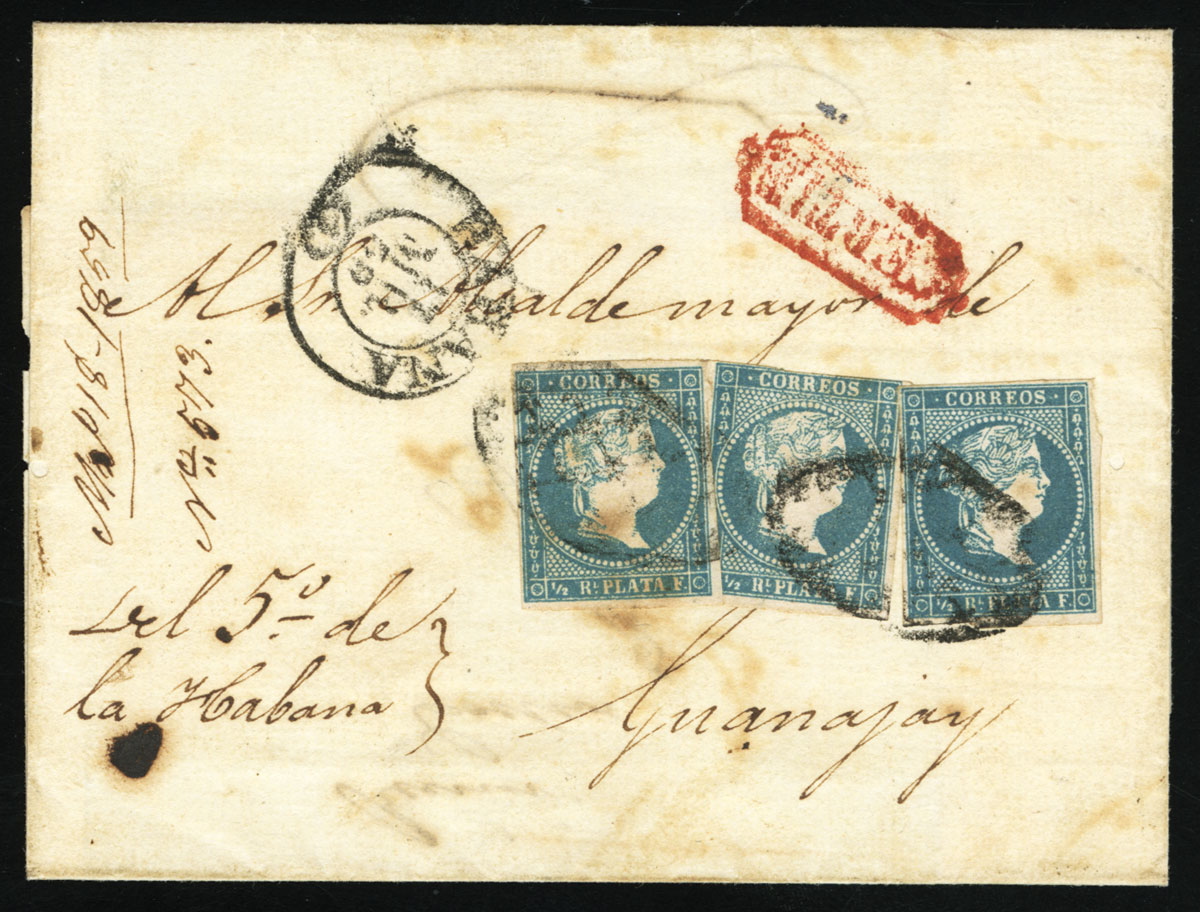 HABANA
Al Sr Alcalde mayor de
CORREOS
½ Rl. PLATA F.
CORREOS
½ Rl. PLATA F.
CORREOS
½ Rl. PLATA F.
Guanajay
Del 5º de
la Habana
Nº 513.
1859